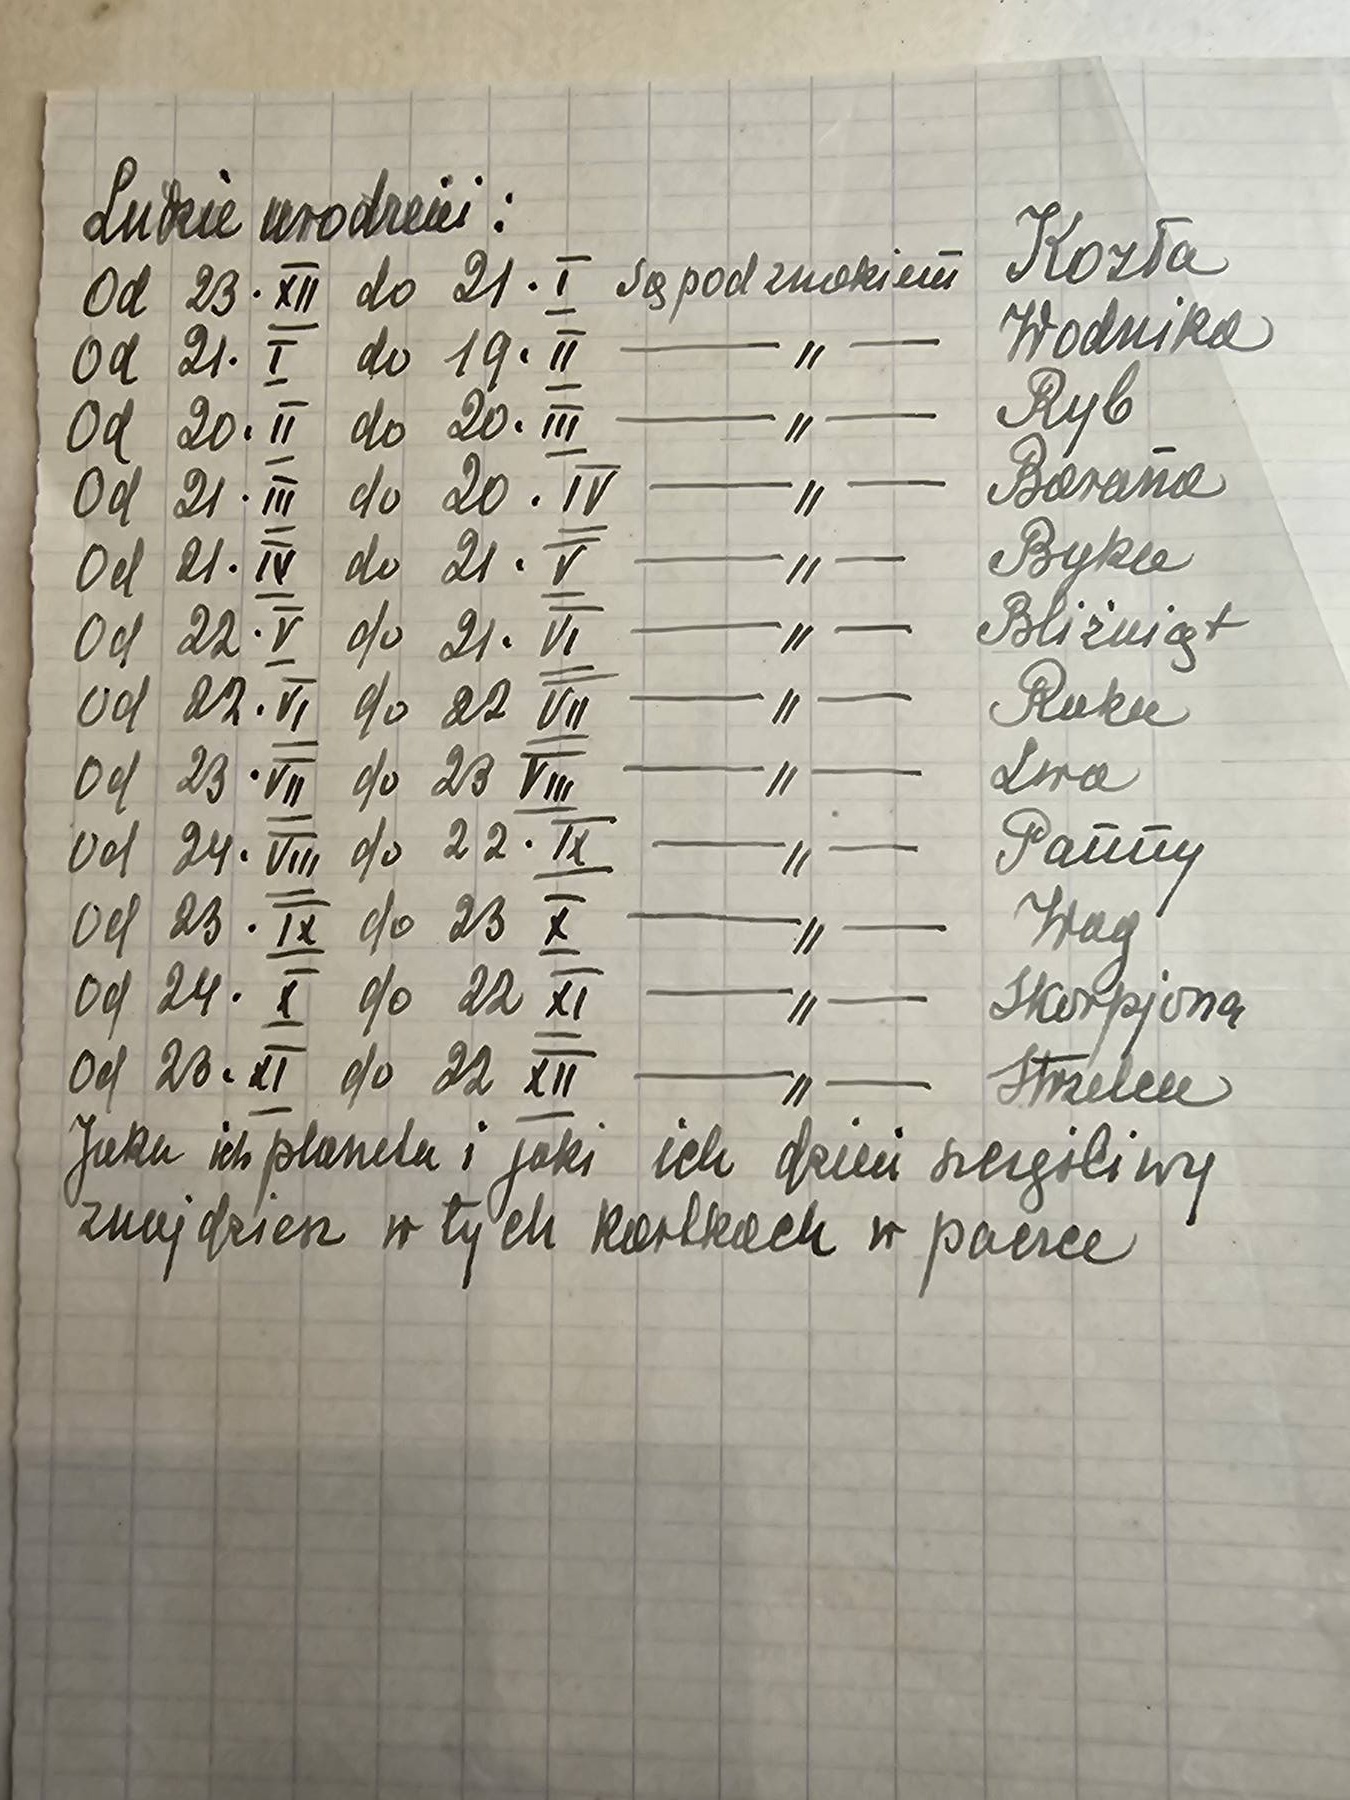 Ludzie urodzeni:
Od 23. XII do 21. I są pod znakiem Kozła
Od 21. I do 19. II — " — Wodnika
Od 20. II do 20. III — " — Ryb
Od 21. III do 20. IV — " — Barana
Od 21. IV do 21. V — " — Byka
Od 22. V do 21. VI — " — Bliźniąt
Od 22. VI do 22 VII — " — Raka
Od 23. VII do 23 VIII — " — Lwa
Od 24. VIII do 22. IX — " — Panny
Od 23. IX do 23 X — " — Wag
Od 24. X do 22 XI — " — Skorpjona
Od 23. XI do 22 XII — " — Strzelca
Jaka ich planeta i jaki ich dzień szczęśliwy
znajdziesz w tych kartkach w paczce